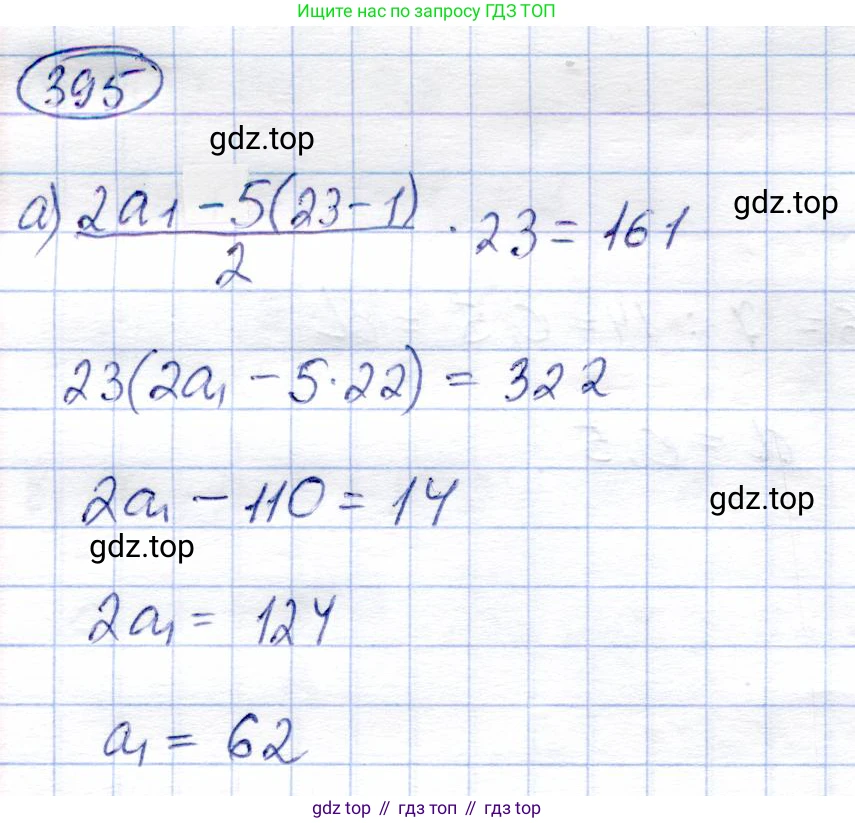 Ищите нас по запросу ГДЗ ТОП
395
gdz.top
а) (2a₁ - 5(23 - 1))/2 · 23 = 161
gdz.top
23(2a₁ - 5·22) = 322
2a₁ - 110 = 14
gdz.top
gdz.top
2a₁ = 124
a₁ = 62
gdz top // гдз топ // gdz top